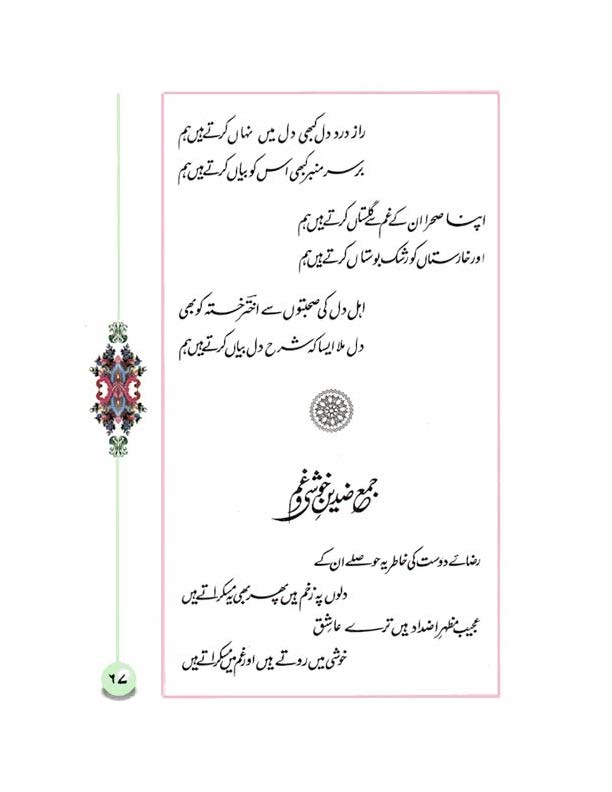 راز درد دل کبھی دل میں نہاں کرتے ہیں ہم
بر سر منبر کبھی اس کو بیاں کرتے ہیں ہم
اپنا صحرا ان کے غم سے گلستاں کرتے ہیں ہم
اور خارستاں کو رشک بوستاں کرتے ہیں ہم
اہل دل کی صحبتوں سے اخترؔ خستہ کو بھی
دل ملا ایسا کہ شرح دل بیاں کرتے ہیں ہم
جمعِ ضدینِ خوشی و غم
رضائے دوست کی خاطر یہ حوصلے ان کے
دلوں پہ زخم ہیں پھر بھی یہ مسکراتے ہیں
عجیب مظہرِ اضداد ہیں ترے عاشق
خوشی میں روتے ہیں اور غم میں مسکراتے ہیں
۶۷